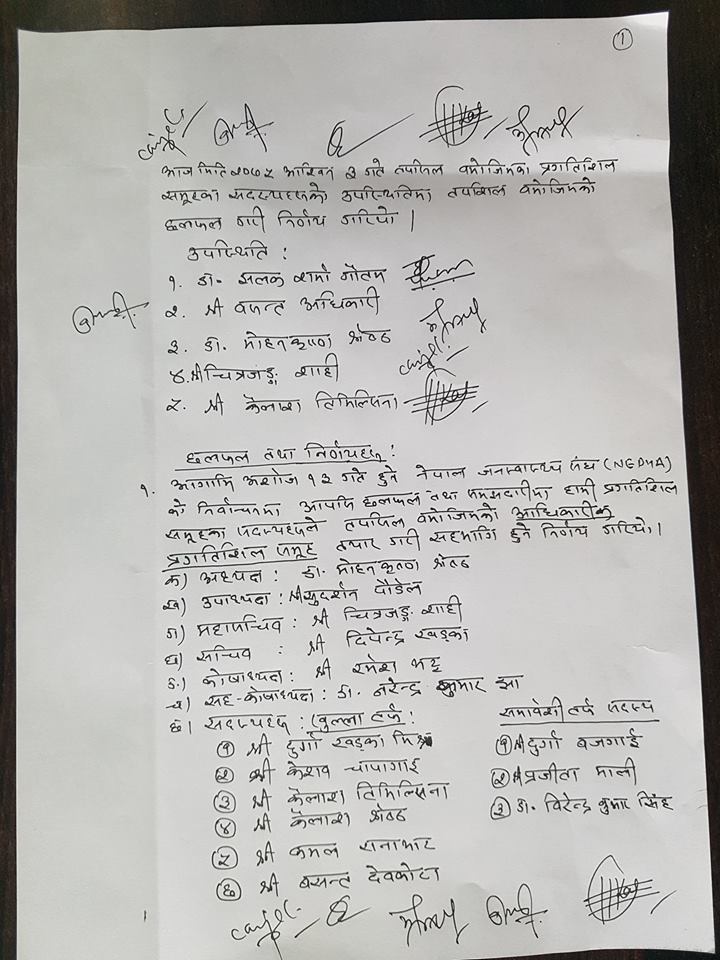 ①
आज मिति २०७५ आश्विन ३ गते तपसिल बमोजिमका प्रगतिशिल
समूहका सदस्यहरुको उपस्थितिमा तपशिल बमोजिमको
छलफल गरी निर्णय गरियो ।
उपस्थिति :
१. डा. झलक शर्मा गौतम
२. श्री बसन्त अधिकारी
३. डा. मोहनकृष्ण श्रेष्ठ
४. श्री चित्रजङ्ग शाही
५. श्री कैलाश तिमिल्सिना
छलफल तथा निर्णयहरु :
१. आगामि अशोज १२ गते हुने नेपाल जनस्वास्थ्य संघ
को निर्वाचनमा आपसि छलफल तथा समझदारीमा हामी प्रगतिशिल
समूहका सदस्यहरुले तपसिल बमोजिमको आधिकारीक
प्रगतिशिल समूह तयार गरी सहभागि हुने निर्णय गरियो ।
क) अध्यक्ष : डा. मोहनकृष्ण श्रेष्ठ
ख) उपाध्यक्ष : श्री सुदर्शन पौडेल
ग) महासचिव : श्री चित्रजङ्ग शाही
घ) सचिव : श्री दिपेन्द्र खड्का
ङ) कोषाध्यक्ष : श्री रमेश भट्ट
च) सह-कोषाध्यक्ष : डा. नरेन्द्र कुमार झा
छ) सदस्यहरु : (खुल्ला तर्फ)
① श्री दुर्गा खड्का मिश्र
② श्री केशव चापागाई
③ श्री कैलाश तिमिल्सिना
④ श्री कैलाश श्रेष्ठ
⑤ श्री कमल रानाभाट
⑥ श्री बसन्त देवकोटा
समावेशी तर्फ सदस्य
① श्री दुर्गा बजगाई
② श्री प्रजीता माली
③ डा. विरेन्द्र कुमार सिंह